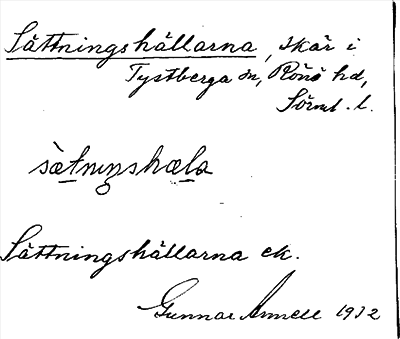 Sättningshällarna, skär i
Tystberga sn, Rönö hd,
Sörml. l.
sætnıŋshæla
Sättningshällarna ek.
Gunnar Annell 1932